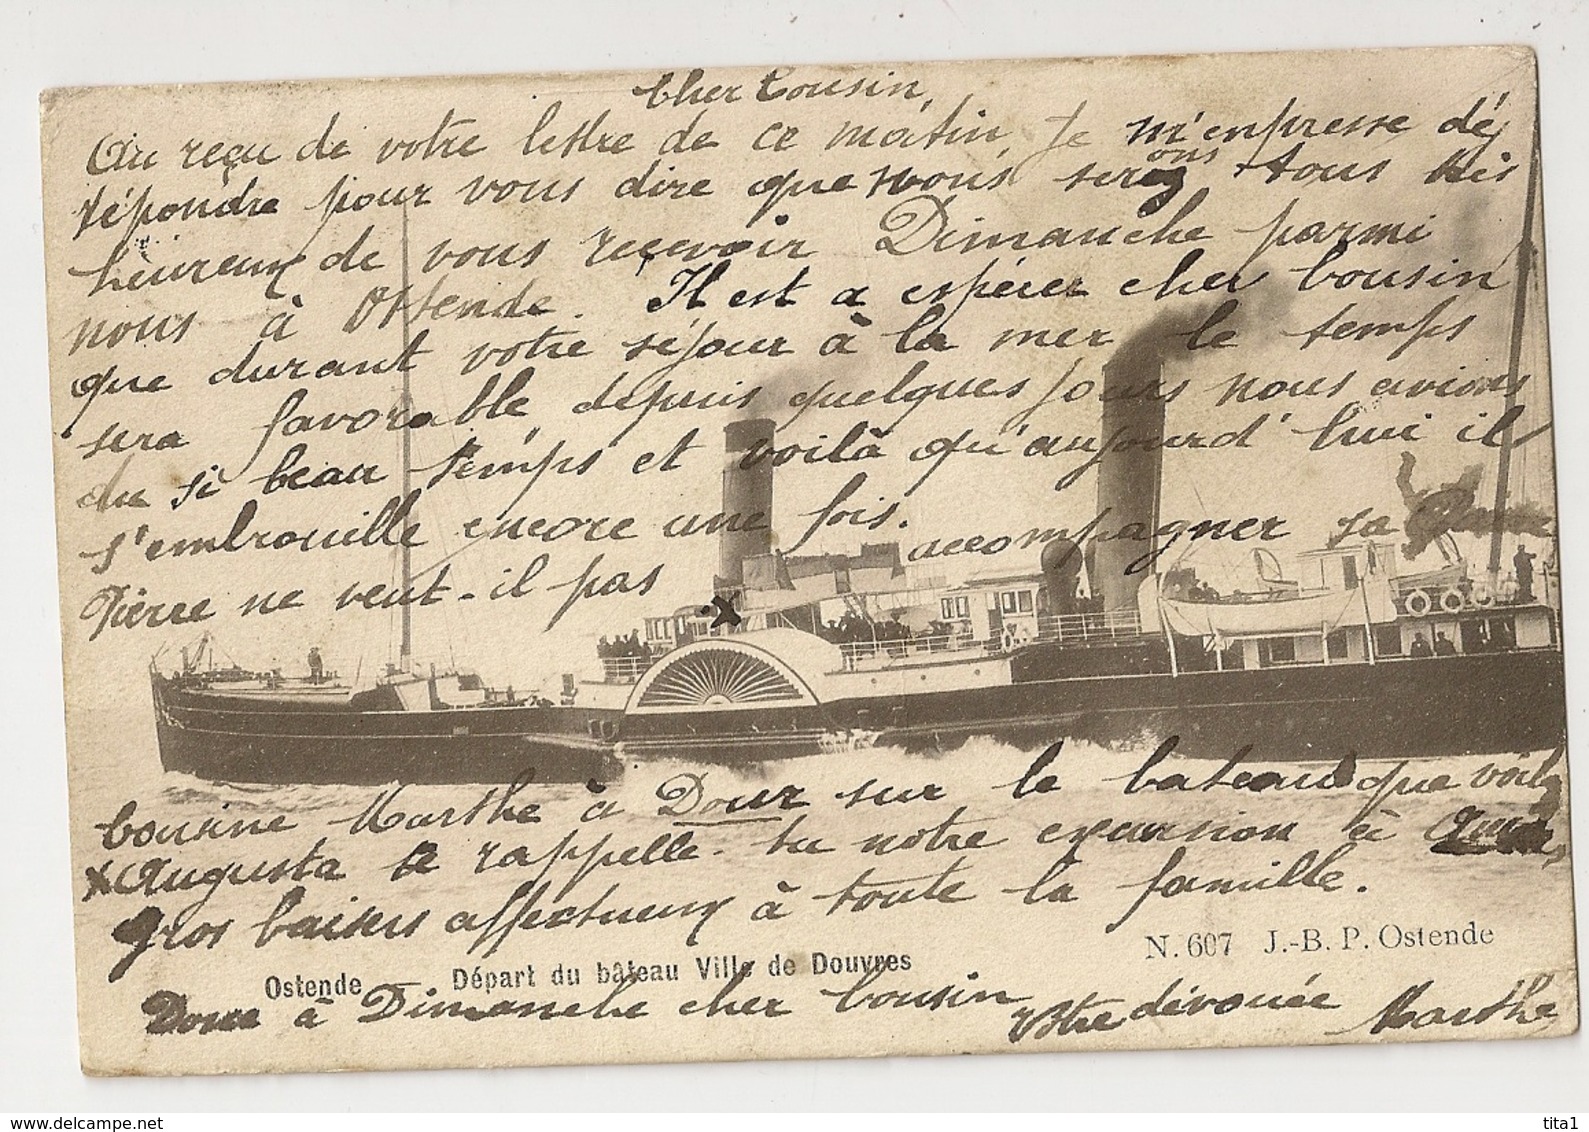 Cher Cousin,
Au reçu de votre lettre de ce matin, je m'empresse de
répondre pour vous dire que nous serons tous très
heureux de vous recevoir Dimanche parmi
nous à Ostende. Il est a espérer cher Cousin
que durant votre séjour à la mer le temps
sera favorable, depuis quelques jours nous avions
du si beau temps et voilà qu'aujourd'hui il
s'embrouille encore une fois.
Pierre ne veut-il pas accompagner sa
X
Cousine Marthe à Dour sur le bateau que voilà
X Augusta te rappelle-tu notre excursion à
Gros baisers affectueux à toute la famille.
N. 607 J.-B. P. Ostende
Ostende Départ du bâteau Ville de Douvres
Donc à Dimanche cher Cousin
Votre dévouée Marthe
delcampe.net
tita1